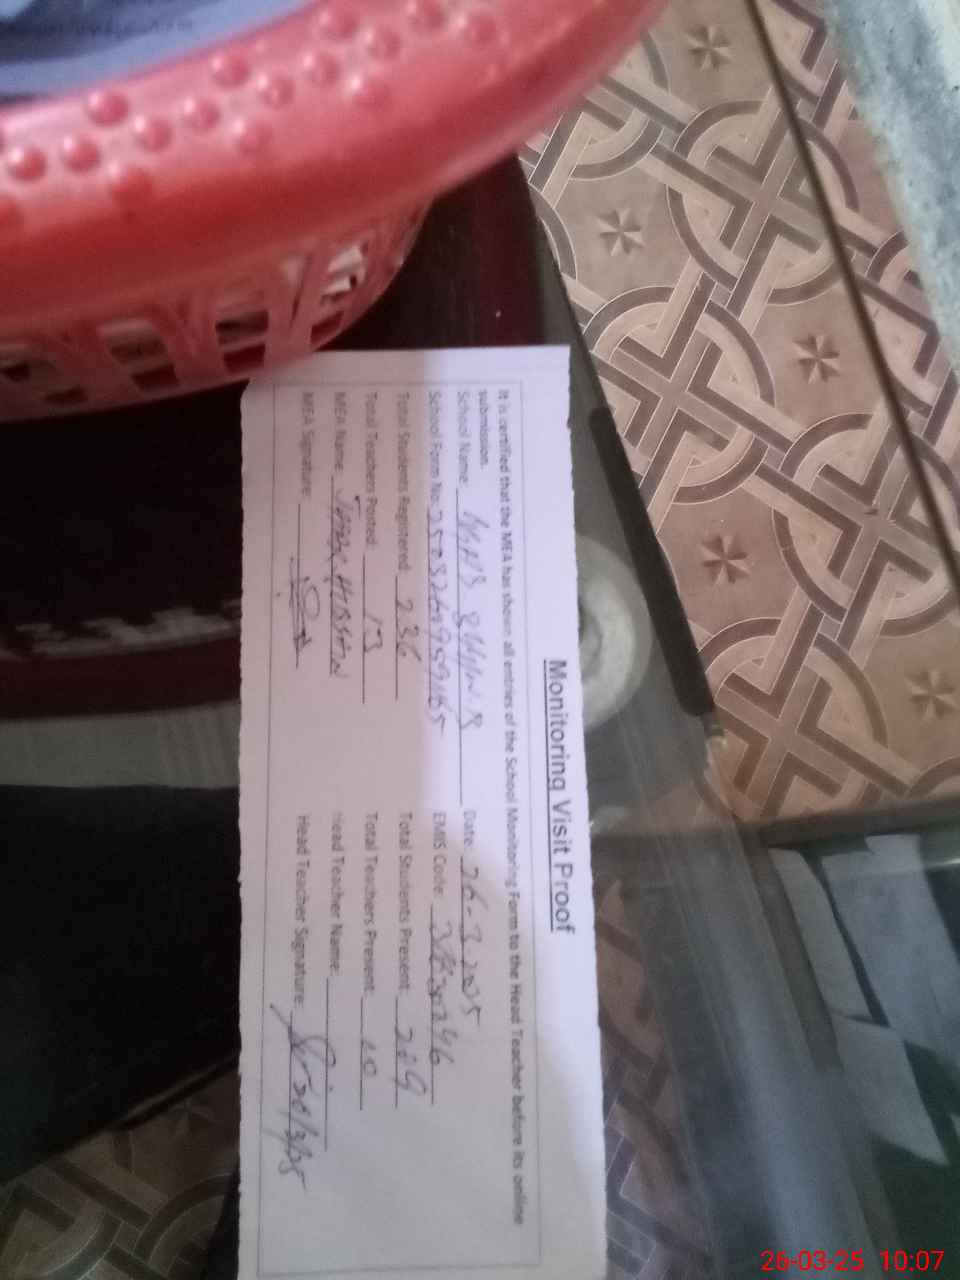 Monitoring Visit Proof
It is certified that the MEA has shown all entries of the School Monitoring Form to the Head Teacher before its online
submission.
School Name Date: 26-3-2025
School Form No: EMIS Code:
Total Student Registered: 236 Total Students Present: 209
Total Teachers Posted: 13 Total Teachers Present: 10
MEA Name HASSAN Head Teacher Name:
MEA Signature: Head Teacher Signature:
26-03-25 10:07